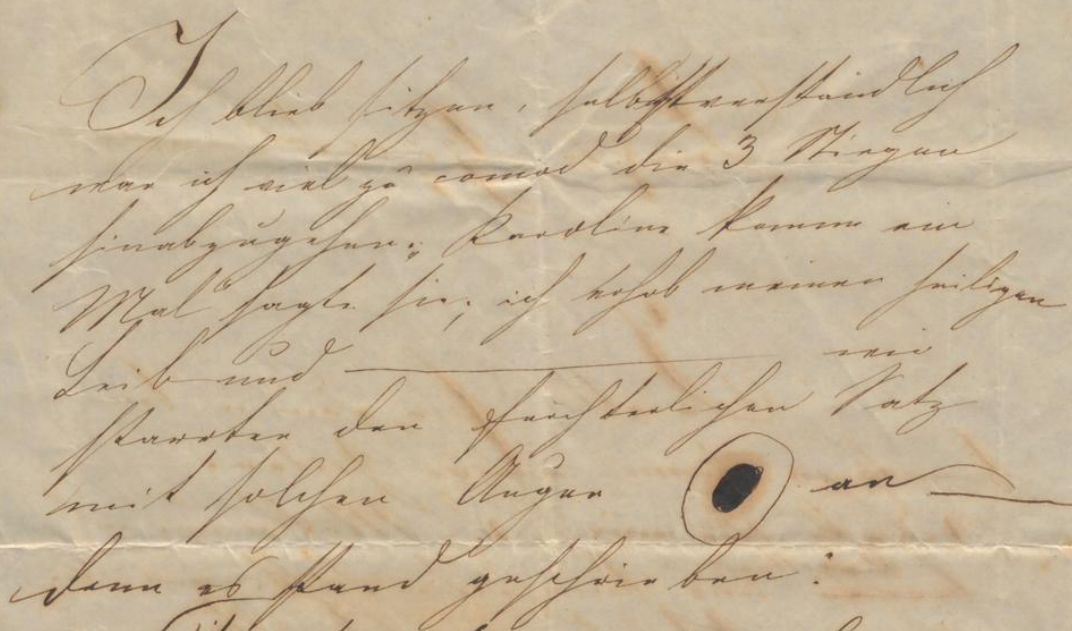 Ich blieb sitzen, selbstverständlich
war ich viel zu comod die 3 Stiegen
hinabzugehen; Karoline komm ein
Mal sagte sie; ich erhob meinen heiligen
Leib und ——— wir
starrten den fürchterlichen Satz
mit solchen Augen an —
denn es stand geschrieben: